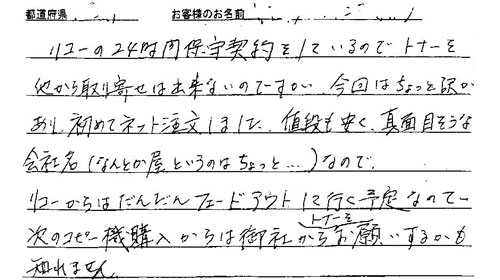 都道府県 お客様のお名前
リコーの24時間保守契約をしているのでトナーを
他から取り寄せは出来ないのですが、今回はちょっと訳が
あり、初めてネット注文しました。値段も安く、真面目そうな
会社名(なんとか屋というのはちょっと…)なので、
リコーからはだんだんフェードアウトして行く予定なので、
トナーを
次のコピー機購入からは御社からお願いするかも
知れません。